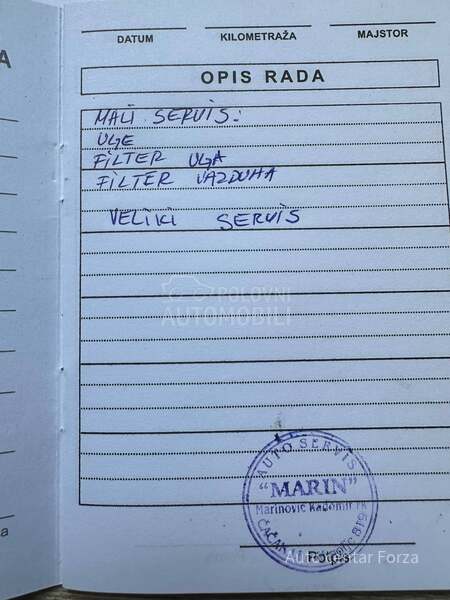 DATUM
KILOMETRAŽA
MAJSTOR
A
OPIS RADA
MALI SERVIS:
ULJE
FILTER ULJA
FILTER VAZDUHA
VELIKI SERVIS
POLOVNI
AUTOMOBILI
AUTO SERVIS
"MARIN"
Marinović Radomir
ČAČAK
Potpis
Auto Centar Forza
a